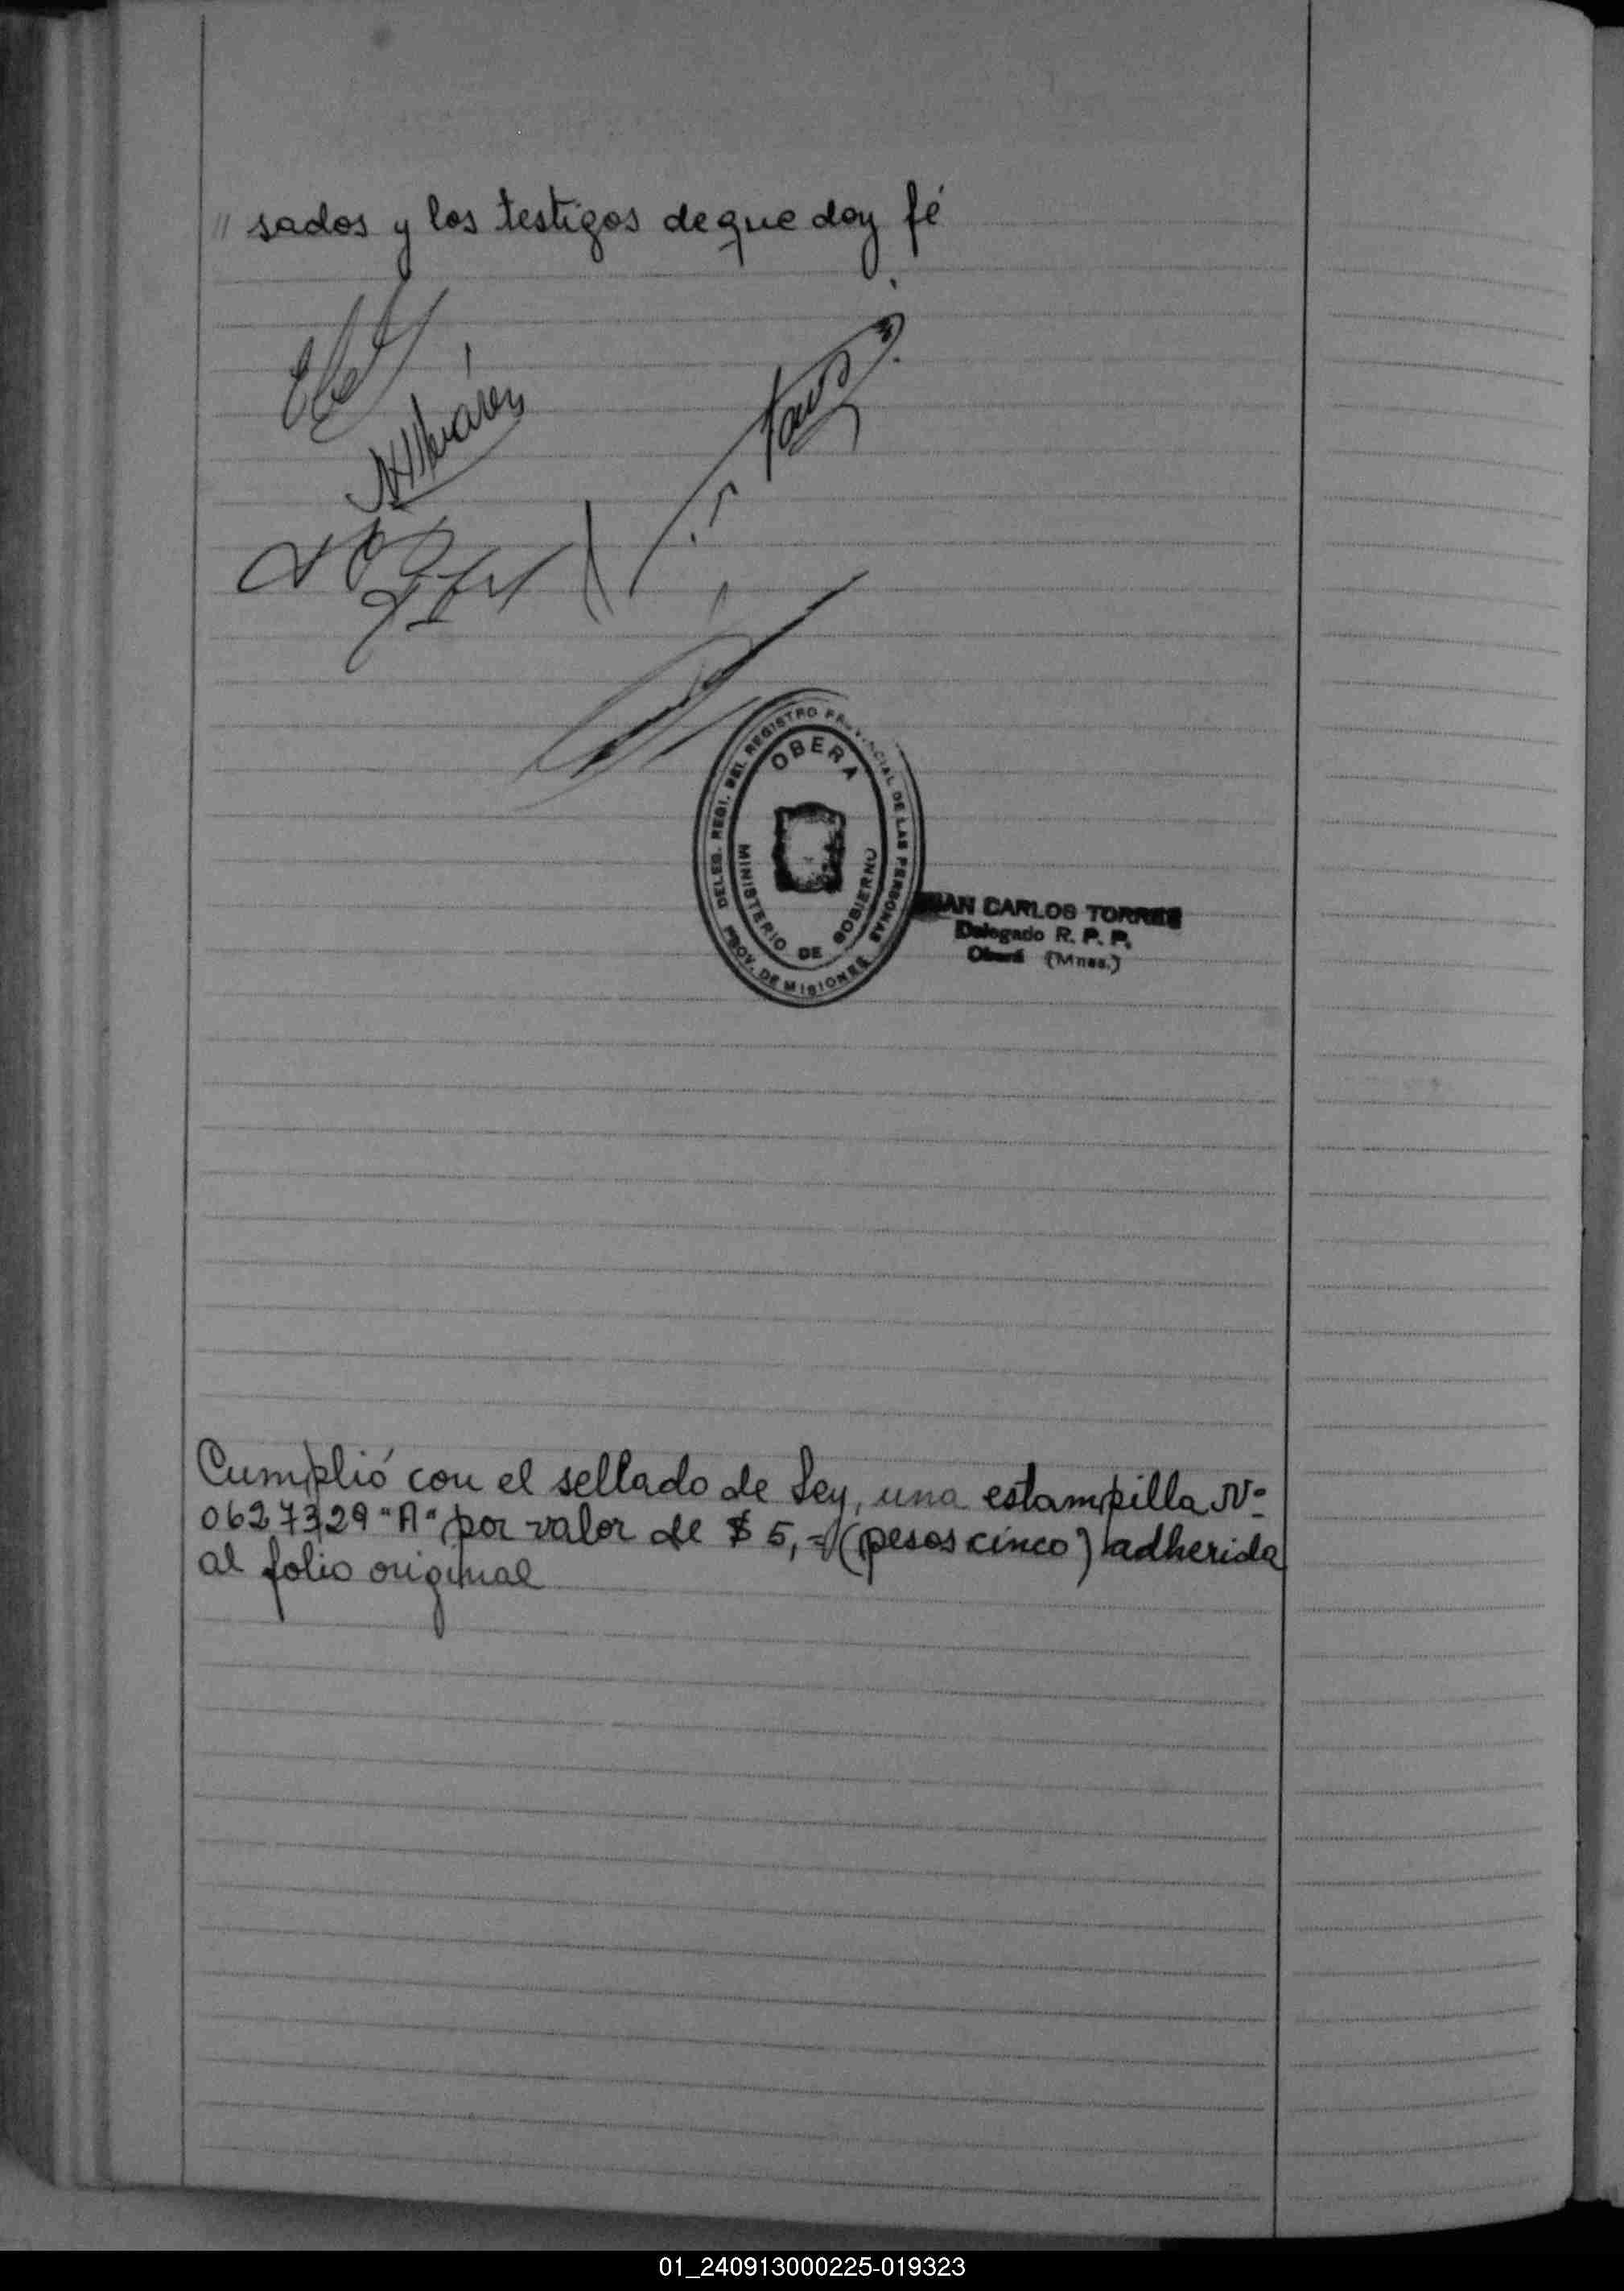 " sados y los testigos de que doy fé
Alvarez
DELEG. REGI. DEL REGISTRO PROVINCIAL DE LAS PERSONAS
OBERA
MINISTERIO DE GOBIERNO
PROV. DE MISIONES
JUAN CARLOS TORRES
Delegado R. P. P.
Oberá (Mnes.)
Cumplió con el sellado de Ley, una estampilla Nº
0627329 "A" por valor de $ 5,= (pesos cinco) adherida
al folio original
01_240913000225-019323